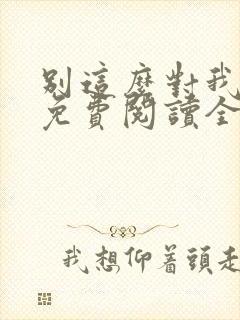 別這麼對我
免費閱讀全
我想仰着頭走